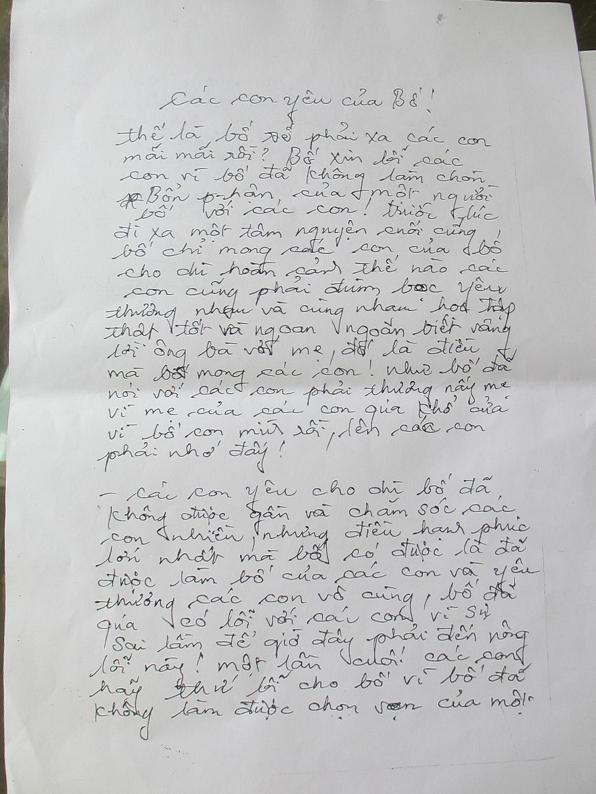 Các con yêu của Bố!
thế là bố sẽ phải xa các con
mãi mãi rồi? Bố xin lỗi các
con vì bố đã không làm chòn
Bổn phận của một người
bố với các con! trước lúc
đi xa một tâm nguyện cuối cùng,
bố chỉ mong các con của bố
cho dù hoàn cảnh thế nào các
con cũng phải đùm bọc yêu
thương nhau và cùng nhau học tập
thật tốt và ngoan ngoãn biết vâng
lời ông bà với mẹ, đó là điều
mà bố mong các con! như bố đã
nói với các con phải thương nấy mẹ
vì mẹ của các con qúa khổ cũng
vì bố con mìn rồi, lên các con
phải nhớ đấy!
- Các con yêu cho dù bố đã
không được gần và chăm sóc các
con nhiều, nhưng điều hạnh phúc
lớn nhất mà bố có được là đã
được làm bố của các con và yêu
thương các con vô cùng, bố đã
qúa có lỗi với các con vì sự
Sai lầm để giờ đây phải đến nông
lỗi này! một lần cuối các con
hãy thứ lỗi cho bố vì bố đã
không làm được chọn vẹn của một